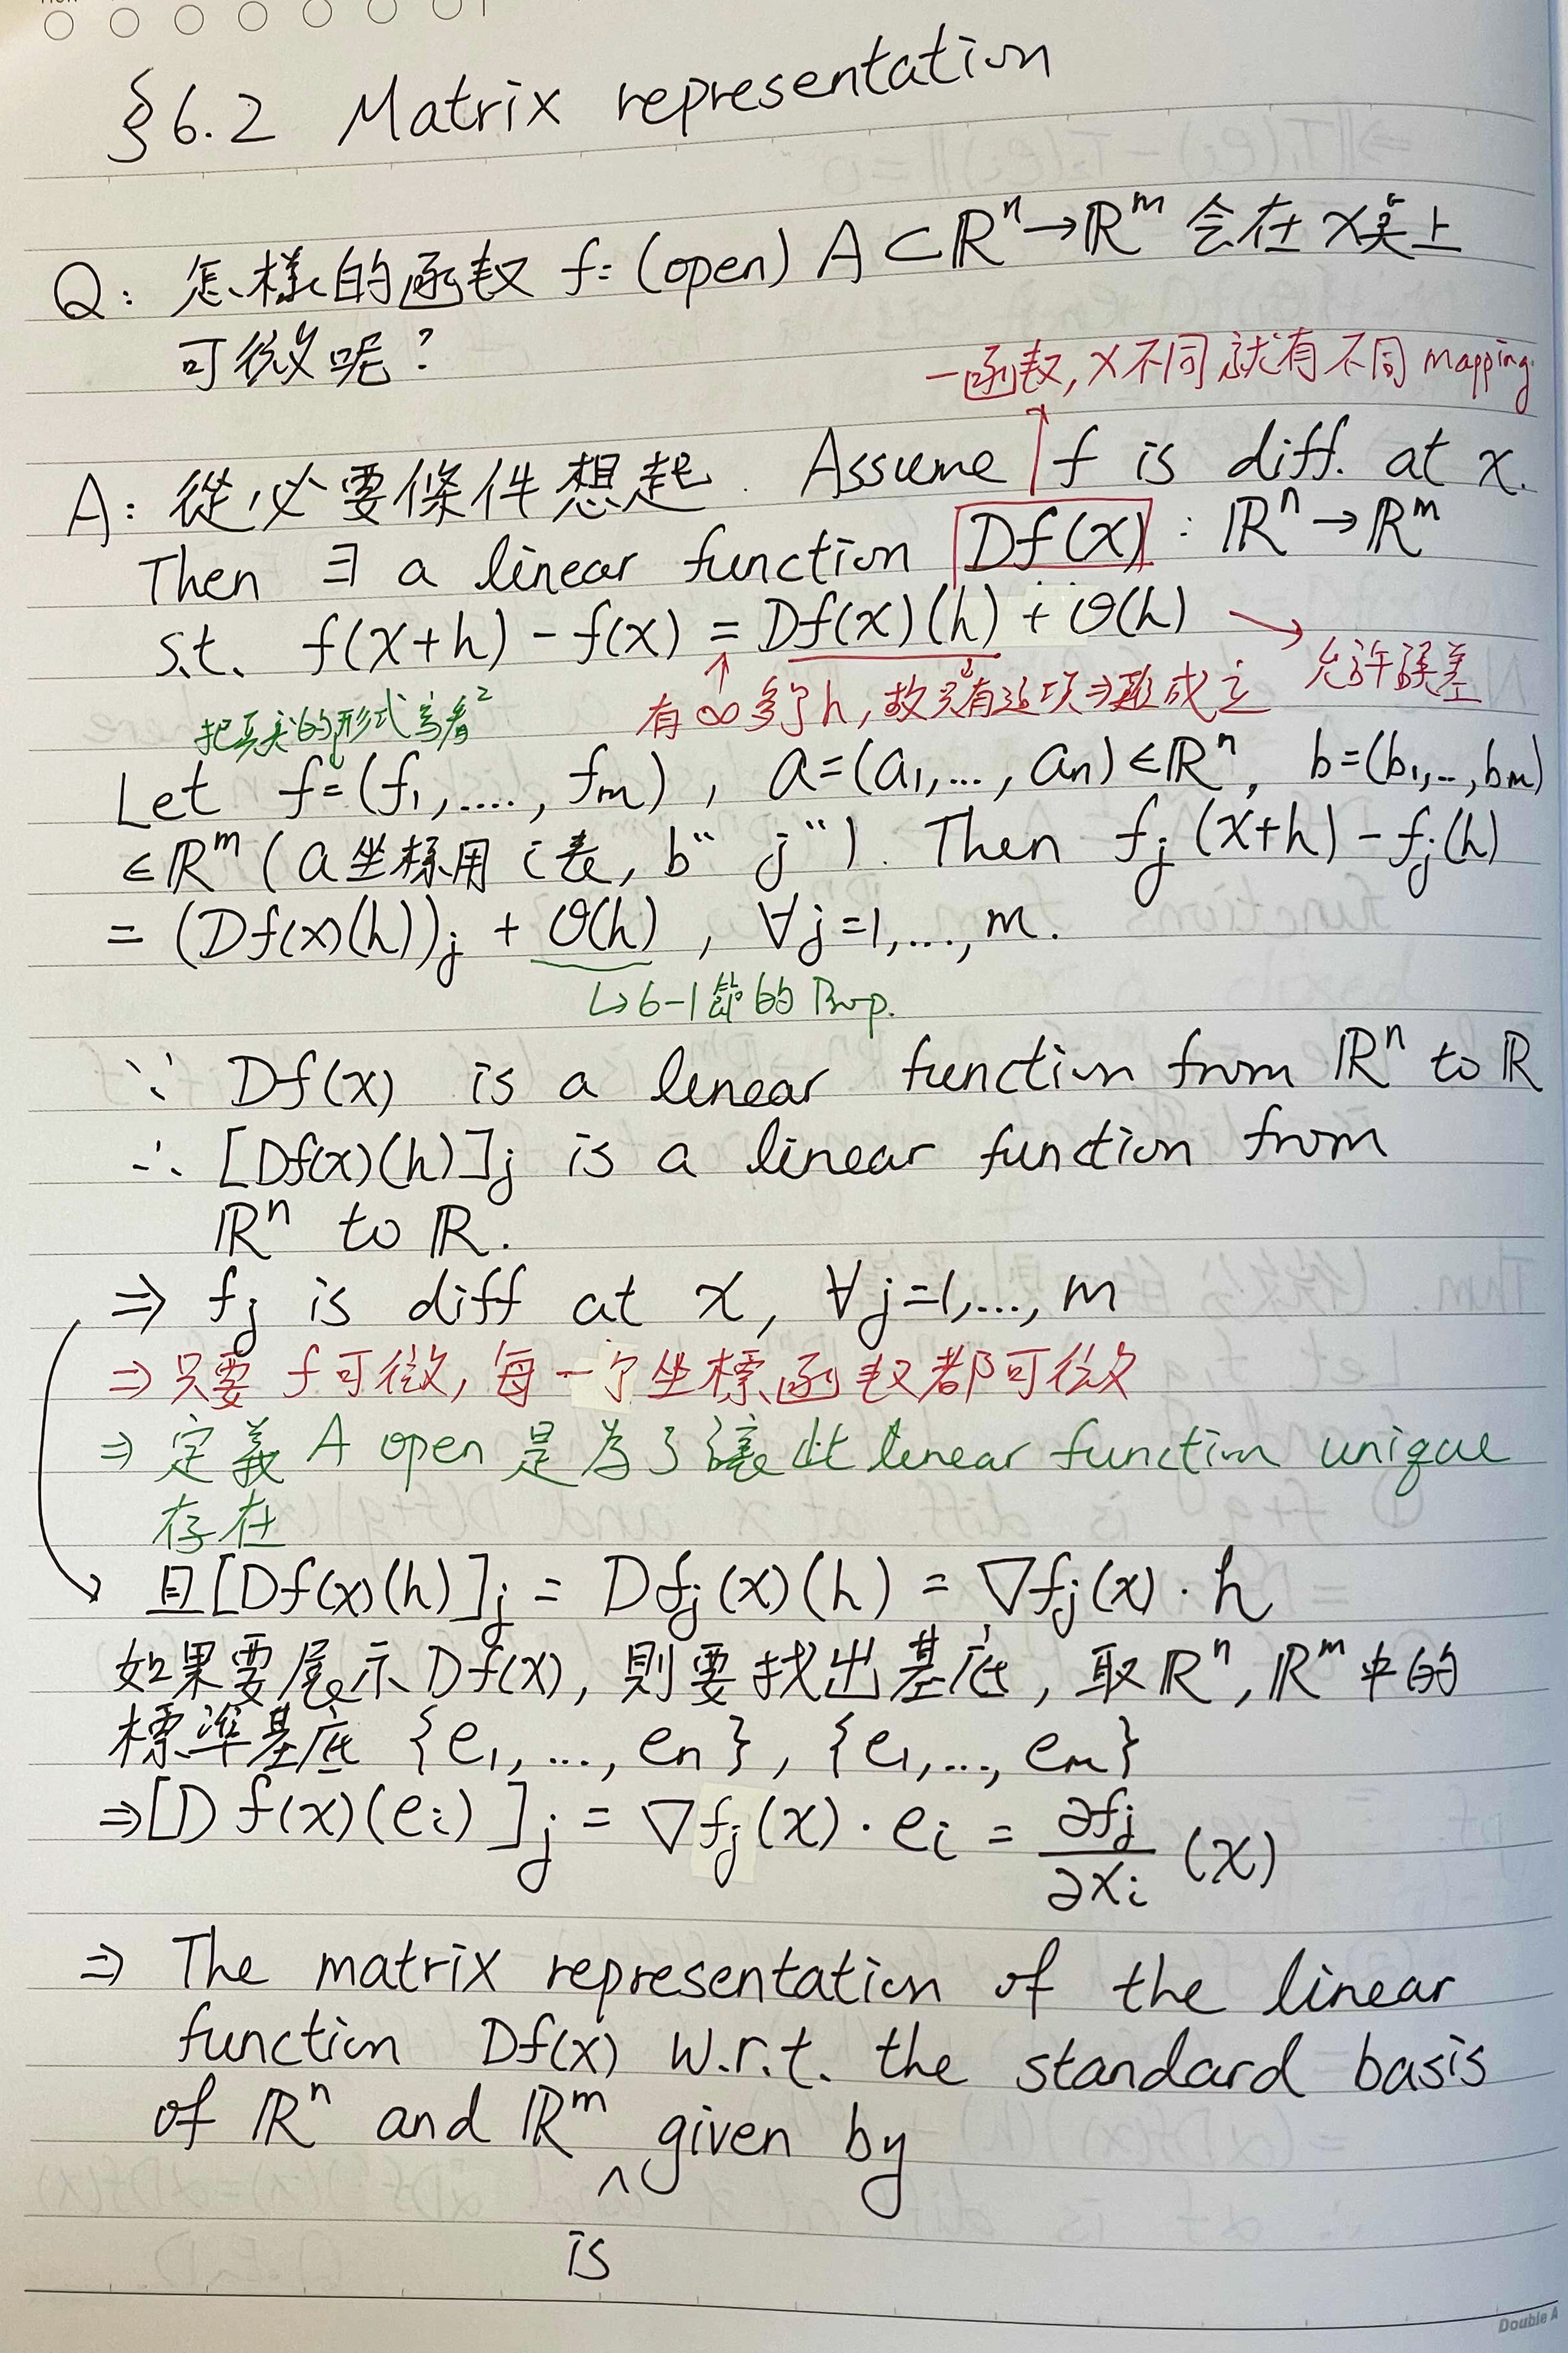 §6.2 Matrix representation
Q: 怎樣的函数 f: (open) A ⊂ ℝⁿ → ℝᵐ 会在 x 点上
可微呢?
一函数, x 不同就有不同 mapping.
A: 從必要條件想起. Assume f is diff. at x.
Then ∃ a linear function Df(x) : ℝⁿ → ℝᵐ
s.t. f(x+h) - f(x) = Df(x)(h) + O(h) → 允許誤差
↑ 有 ∞ 多个 h, 故只有這項 成立
把真实的形式写看看
Let f = (f₁, ...., fₘ), a = (a₁, ..., aₙ) ∈ ℝⁿ, b = (b₁, .., bₘ)
∈ ℝᵐ (a 坐標用 i 表, b " j "). Then fⱼ(x+h) - fⱼ(h)
= (Df(x)(h))ⱼ + O(h), ∀j=1, ..., m.
↳ 6-1 節的 Prop.
∵ Df(x) is a linear function from ℝⁿ to ℝ
∴ [Df(x)(h)]ⱼ is a linear function from
ℝⁿ to ℝ.
⇒ fⱼ is diff at x, ∀j=1, ..., m
⇒ 只要 f 可微, 每一个坐標函数都可微
⇒ 定義 A open 是為了讓此 linear function unique
存在
且 [Df(x)(h)]ⱼ = Dfⱼ(x)(h) = ∇fⱼ(x) · h
如果要展示 Df(x), 則要找出基底, 取 ℝⁿ, ℝᵐ 中的
標準基底 {e₁, ..., eₙ}, {e₁, ..., eₘ}
⇒ [Df(x)(eᵢ)]ⱼ = ∇fⱼ(x) · eᵢ = ∂fⱼ/∂xᵢ (x)
⇒ The matrix representation of the linear
function Df(x) w.r.t. the standard basis
of ℝⁿ and ℝᵐ ∧ given by
is
Double A